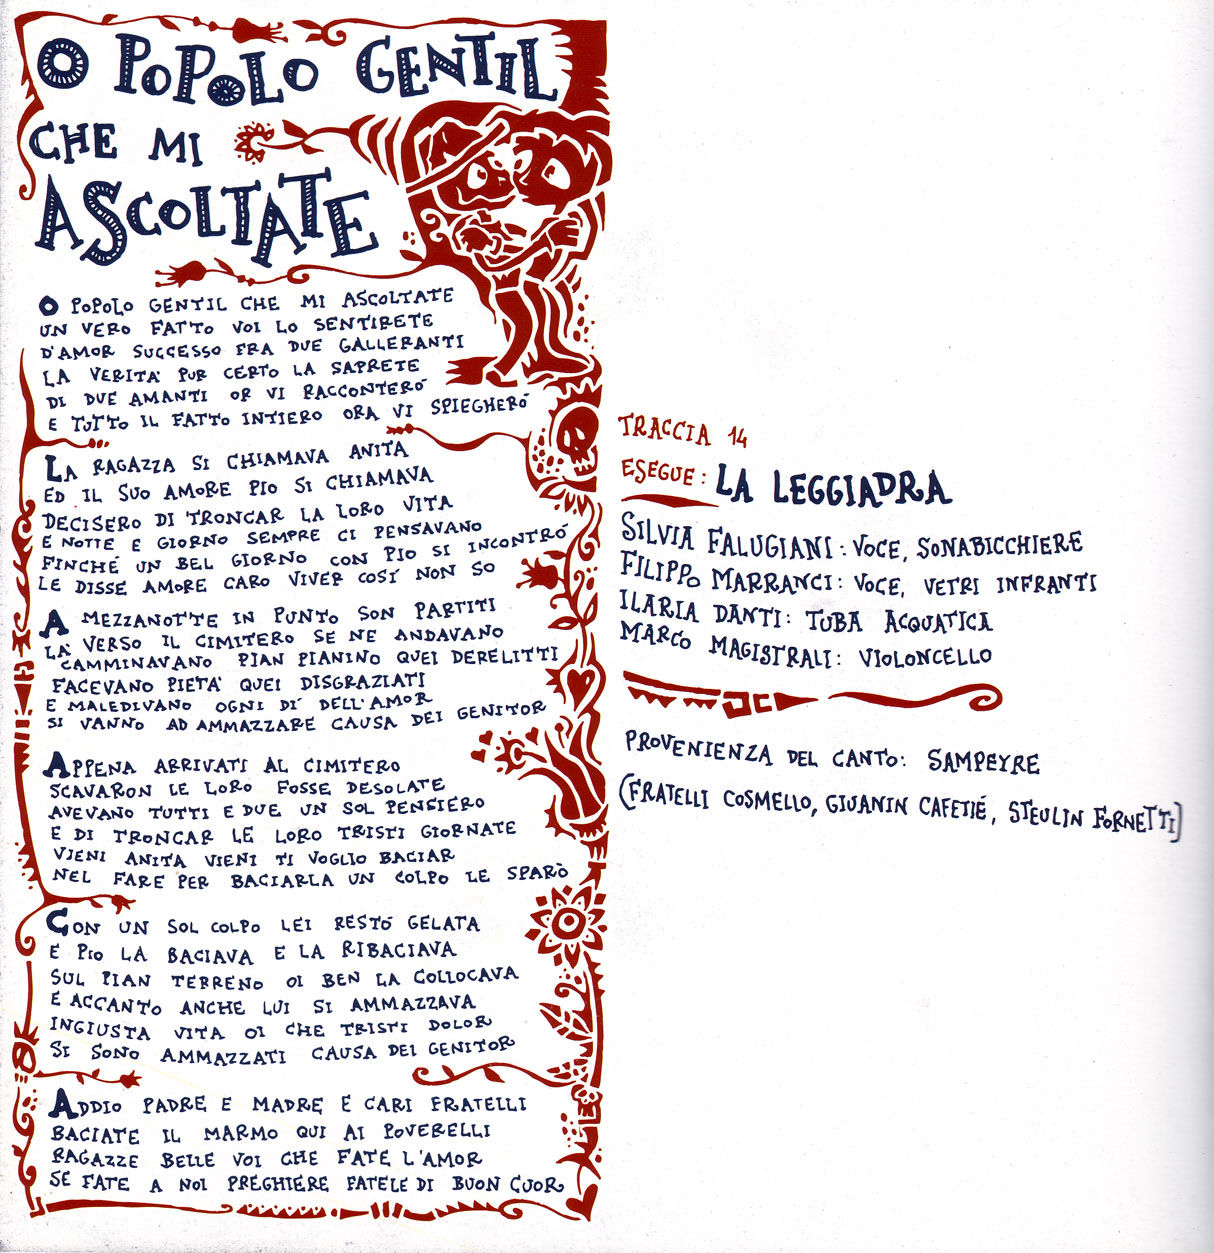 O POPOLO GENTIL
CHE MI
ASCOLTATE
O POPOLO GENTIL CHE MI ASCOLTATE
UN VERO FATTO VOI LO SENTIRETE
D'AMOR SUCCESSO FRA DUE GALLERANTI
LA VERITA' PUR CERTO LA SAPRETE
DI DUE AMANTI OR VI RACCONTERÓ
E TUTTO IL FATTO INTIERO ORA VI SPIEGHERÓ
LA RAGAZZA SI CHIAMAVA ANITA
ED IL SUO AMORE PIO SI CHIAMAVA
DECISERO DI TRONCAR LA LORO VITA
E NOTTE E GIORNO SEMPRE CI PENSAVANO
FINCHÉ UN BEL GIORNO CON PIO SI INCONTRÓ
LE DISSE AMORE CARO VIVER COSÍ NON SO
A MEZZANOTTE IN PUNTO SON PARTITI
LA' VERSO IL CIMITERO SE NE ANDAVANO
CAMMINAVANO PIAN PIANINO QUEI DERELITTI
FACEVANO PIETA' QUEI DISGRAZIATI
E MALEDIVANO OGNI DI' DELL'AMOR
SI VANNO AD AMMAZZARE CAUSA DEI GENITOR
APPENA ARRIVATI AL CIMITERO
SCAVARON LE LORO FOSSE DESOLATE
AVEVANO TUTTI E DUE UN SOL PENSIERO
E DI TRONCAR LE LORO TRISTI GIORNATE
VIENI ANITA VIENI TI VOGLIO BACIAR
NEL FARE PER BACIARLA UN COLPO LE SPARÒ
CON UN SOL COLPO LEI RESTÓ GELATA
E PIO LA BACIAVA E LA RIBACIAVA
SUL PIAN TERRENO OI BEN LA COLLOCAVA
E ACCANTO ANCHE LUI SI AMMAZZAVA
INGIUSTA VITA OI CHE TRISTI DOLOR
SI SONO AMMAZZATI CAUSA DEI GENITOR
ADDIO PADRE E MADRE E CARI FRATELLI
BACIATE IL MARMO QUI AI POVERELLI
RAGAZZE BELLE VOI CHE FATE L'AMOR
SE FATE A NOI PREGHIERE FATELE DI BUON CUOR
TRACCIA 14
ESEGUE: LA LEGGIADRA
SILVIA FALUGIANI: VOCE, SONABICCHIERE
FILIPPO MARRANCI: VOCE, VETRI INFRANTI
ILARIA DANTI: TUBA ACQUATICA
MARCO MAGISTRALI: VIOLONCELLO
PROVENIENZA DEL CANTO: SAMPEYRE
(FRATELLI COSMELLO, GIUANIN CAFETIÉ, STEULIN FORNETTI)